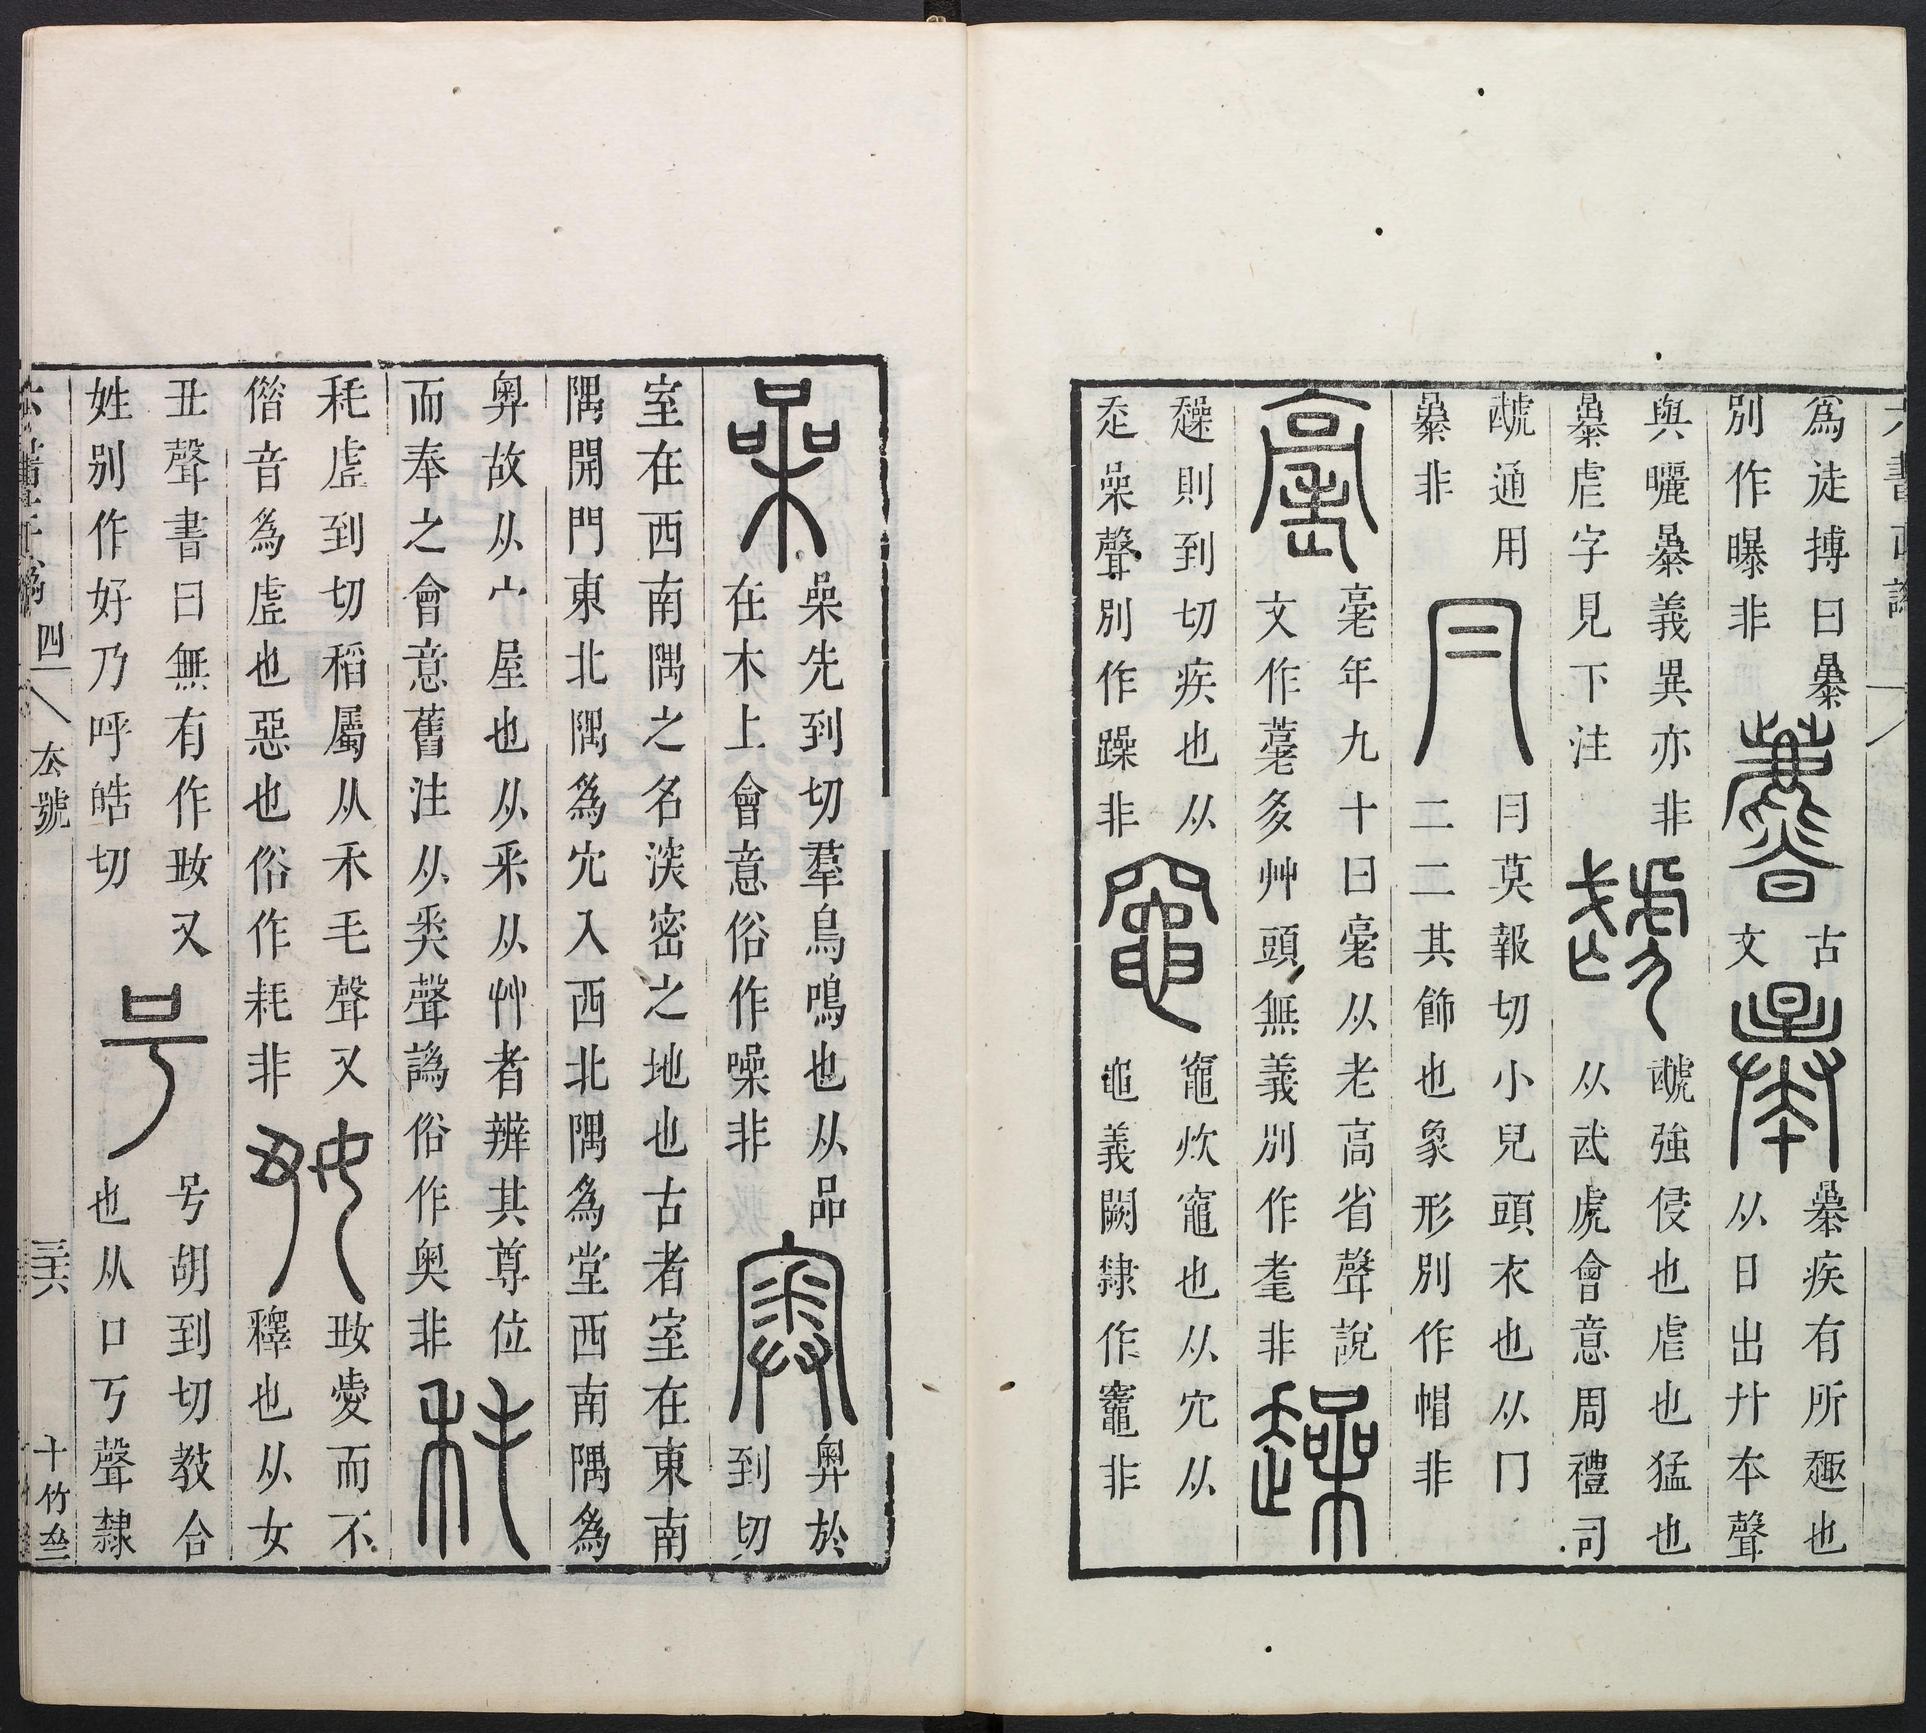 六書正譌
爲徒搏曰㬥
別作曝非
古
文
㬥疾有所趣也
从日出廾夲聲
與曬㬥義異亦非
㬥虐字見下注
虣
虣強侵也虐也猛也
从武虎會意周禮司
虣通用
㬥非
冃
冃莫報切小兒頭衣也从冂
二二其飾也象形別作帽非
年九十曰从老高省聲說
文作多艸頭無義別作耄非
趮
趮則到切疾也从
走喿聲別作躁非
竈
竈炊竈也从穴从
黽義闕隸作竈非
喿
喿先到切羣鳥鳴也从品
在木上會意俗作噪非
奥
奥於
到切
室在西南隅之名深密之地也古者室在東南
隅開門東北隅爲宂入西北隅爲堂西南隅爲
奥故从宀屋也从釆从艸者辨其尊位
而奉之會意舊注从聲譌俗作奥非
秏
秏虛到切稻屬从禾毛聲又
偺音爲虛也惡也俗作耗非
㚼
㚼愛而不
釋也从女
丑聲書曰無有作㚼又
姓別作好乃呼皓切
号
号胡到切教令
也从口丂聲隸
六書正譌 四 去號 三十六 十竹齋